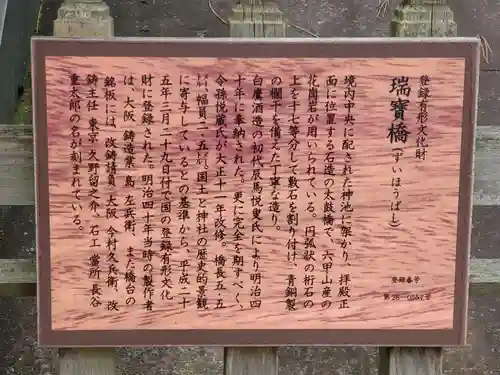 登録有形文化財
瑞寶橋（ずいほうばし）
境内中央に配された神池に架かり、拝殿正
面に位置する石造の太鼓橋で、六甲山産の
花崗岩が用いられている。円弧状の桁石の
上を十七等分して敷石を割り付け、青銅製
の欄干を備えた丁寧な造り。
白鷹酒造の初代辰馬悦叟氏により明治四
十年に奉納された。更に完全を期すべく、
令孫悦蔵氏が大正十一年改修。橋長五・五
㍍、幅員二・五㍍。国土と神社の歴史的景観
に寄与しているとの基準から、平成二十
五年三月二十九日付で国の登録有形文化
財に登録された。明治四十年当時の製作者
は、大阪 鋳造業 島 左兵衛、また橋台の
銘板には、改鋳請負 大阪 今村久兵衛、改
鋳主任 東京 久野留之介、石工 當所 長谷
重太郎の名が刻まれている。
登録番号
第28-0557号